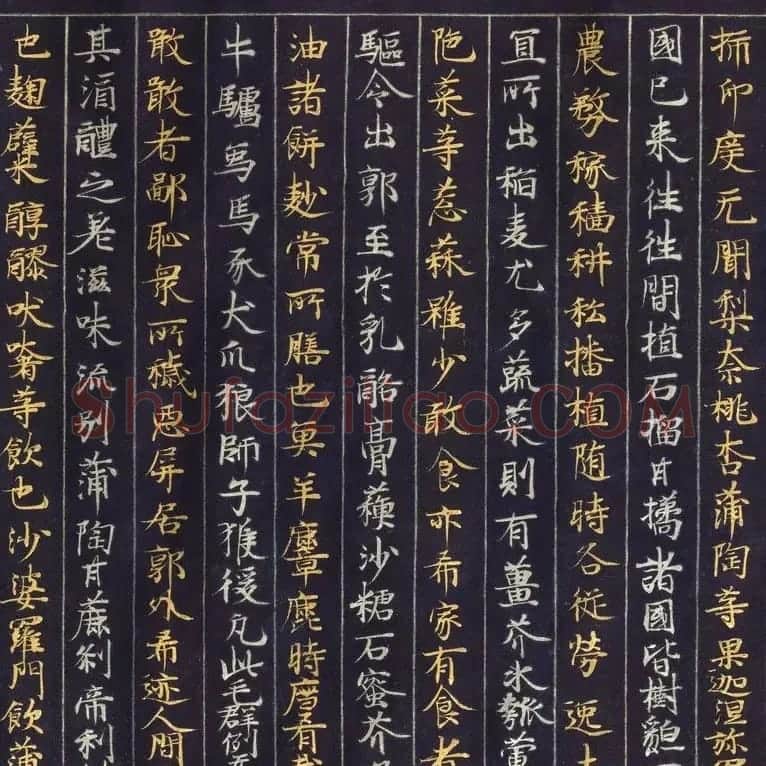 柿印度无聞梨柰桃杏蒲陶等果迦湿弥羅
國已来往往間植石榴甘橘諸國皆樹
農務稼穡耕耘播植随時各従勞逸土
宜所出稲麦尤多蔬菜則有薑芥水瓠葷
陁菜等葱蒜雖少敢食亦希家有食者
驅令出郭至於乳酪膏蘓沙糖石蜜芥
油諸餅麨常所膳也魚羊麞鹿時
牛驢為馬豕犬狐狼師子猴猨凡此毛群例无
敢敢者鄙恥衆所穢惡屏居郭外希迹人間
其酒醴之差滋味流別蒲陶甘蔗刹帝利
也麹糵醇醪吠奢等飲也沙婆羅門飲蒲
Shufaziliao.COM